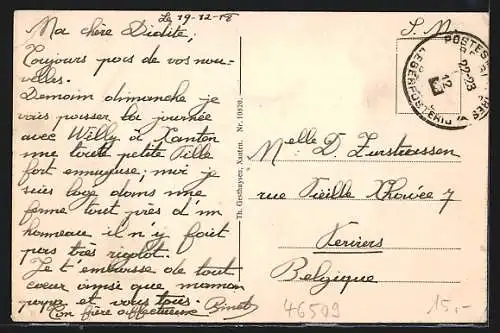 Le 19-12-18
Ma chère Didite,
Toujours pas de vos nou-
velles.
Demain dimanche je
vais passer la journée
avec Willy à Xanten
une toute petite ville
fort ennuyeuse; moi je
suis logé dans une
ferme tout près d'un
hameau il n'y fait
pas très rigolot.
Je t'embrasse de tout
coeur ainsi que maman
papa et vous tous.
Ton frère affectueux
Th. Gesthuysen, Xanten. Nr. 10820.
S. M.
POSTES MILITAIRES
22-23
12
LEGERPOSTERIJ
Melle D. Zurstrassen
rue Vieille Xhavée 7
Verviers
Belgique
46509
15,-